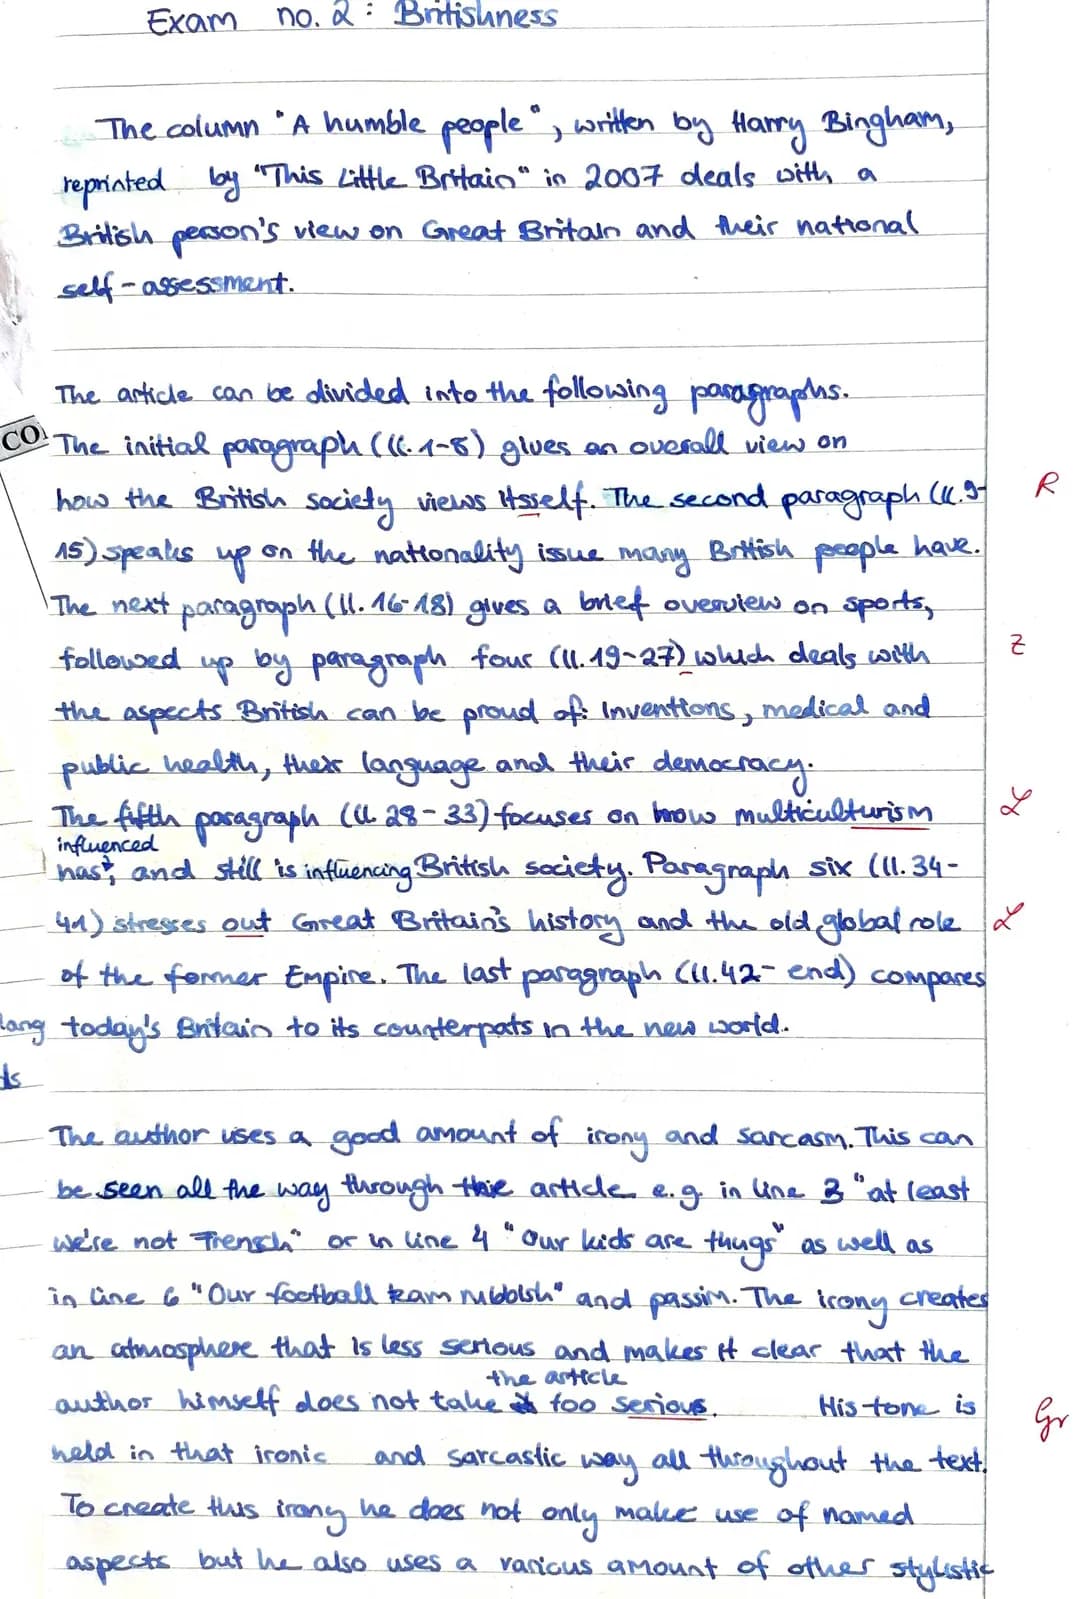 Exam no. 2: Britishness
The column "A humble people", written by Harry Bingham,
reprinted by "This Little Britain" in 2007 deals with a
British person's view on Great Britain and their national
self-assessment.
The article can be divided into the following paragraphs.
CO
The initial paragraph (ll. 1-8) gives an overall view on
how the British society views itsself. The second paragraph (ll. 9- R
15) speaks up on the nationality issue many British people have.
The next paragraph (ll. 16-18) gives a brief overview on sports,
followed up by paragraph four (ll. 19-27) which deals with Z
the aspects British can be proud of: Inventions, medical and
public health, their language and their democracy.
The fifth paragraph (ll. 28-33) focuses on how multiculturism L
influenced
has, and still is influencing British society. Paragraph six (ll. 34-
41) stresses out Great Britain's history and the old global role L
of the former Empire. The last paragraph (ll. 42- end) compares
lang today's Britain to its counterpats in the new world.
ds
The author uses a good amount of irony and sarcasm. This can
be seen all the way through the article e.g. in line 3 "at least
we're not French" or in line 4 "Our kids are thugs" as well as
in line 6 "Our football team rubbish" and passim. The irony creates
an atmosphere that is less serious and makes it clear that the
the article
author himself does not take too serious. His tone is Gr
held in that ironic and sarcastic way all throughout the text.
To create this irony he does not only make use of named
aspects but he also uses a various amount of other stylistic